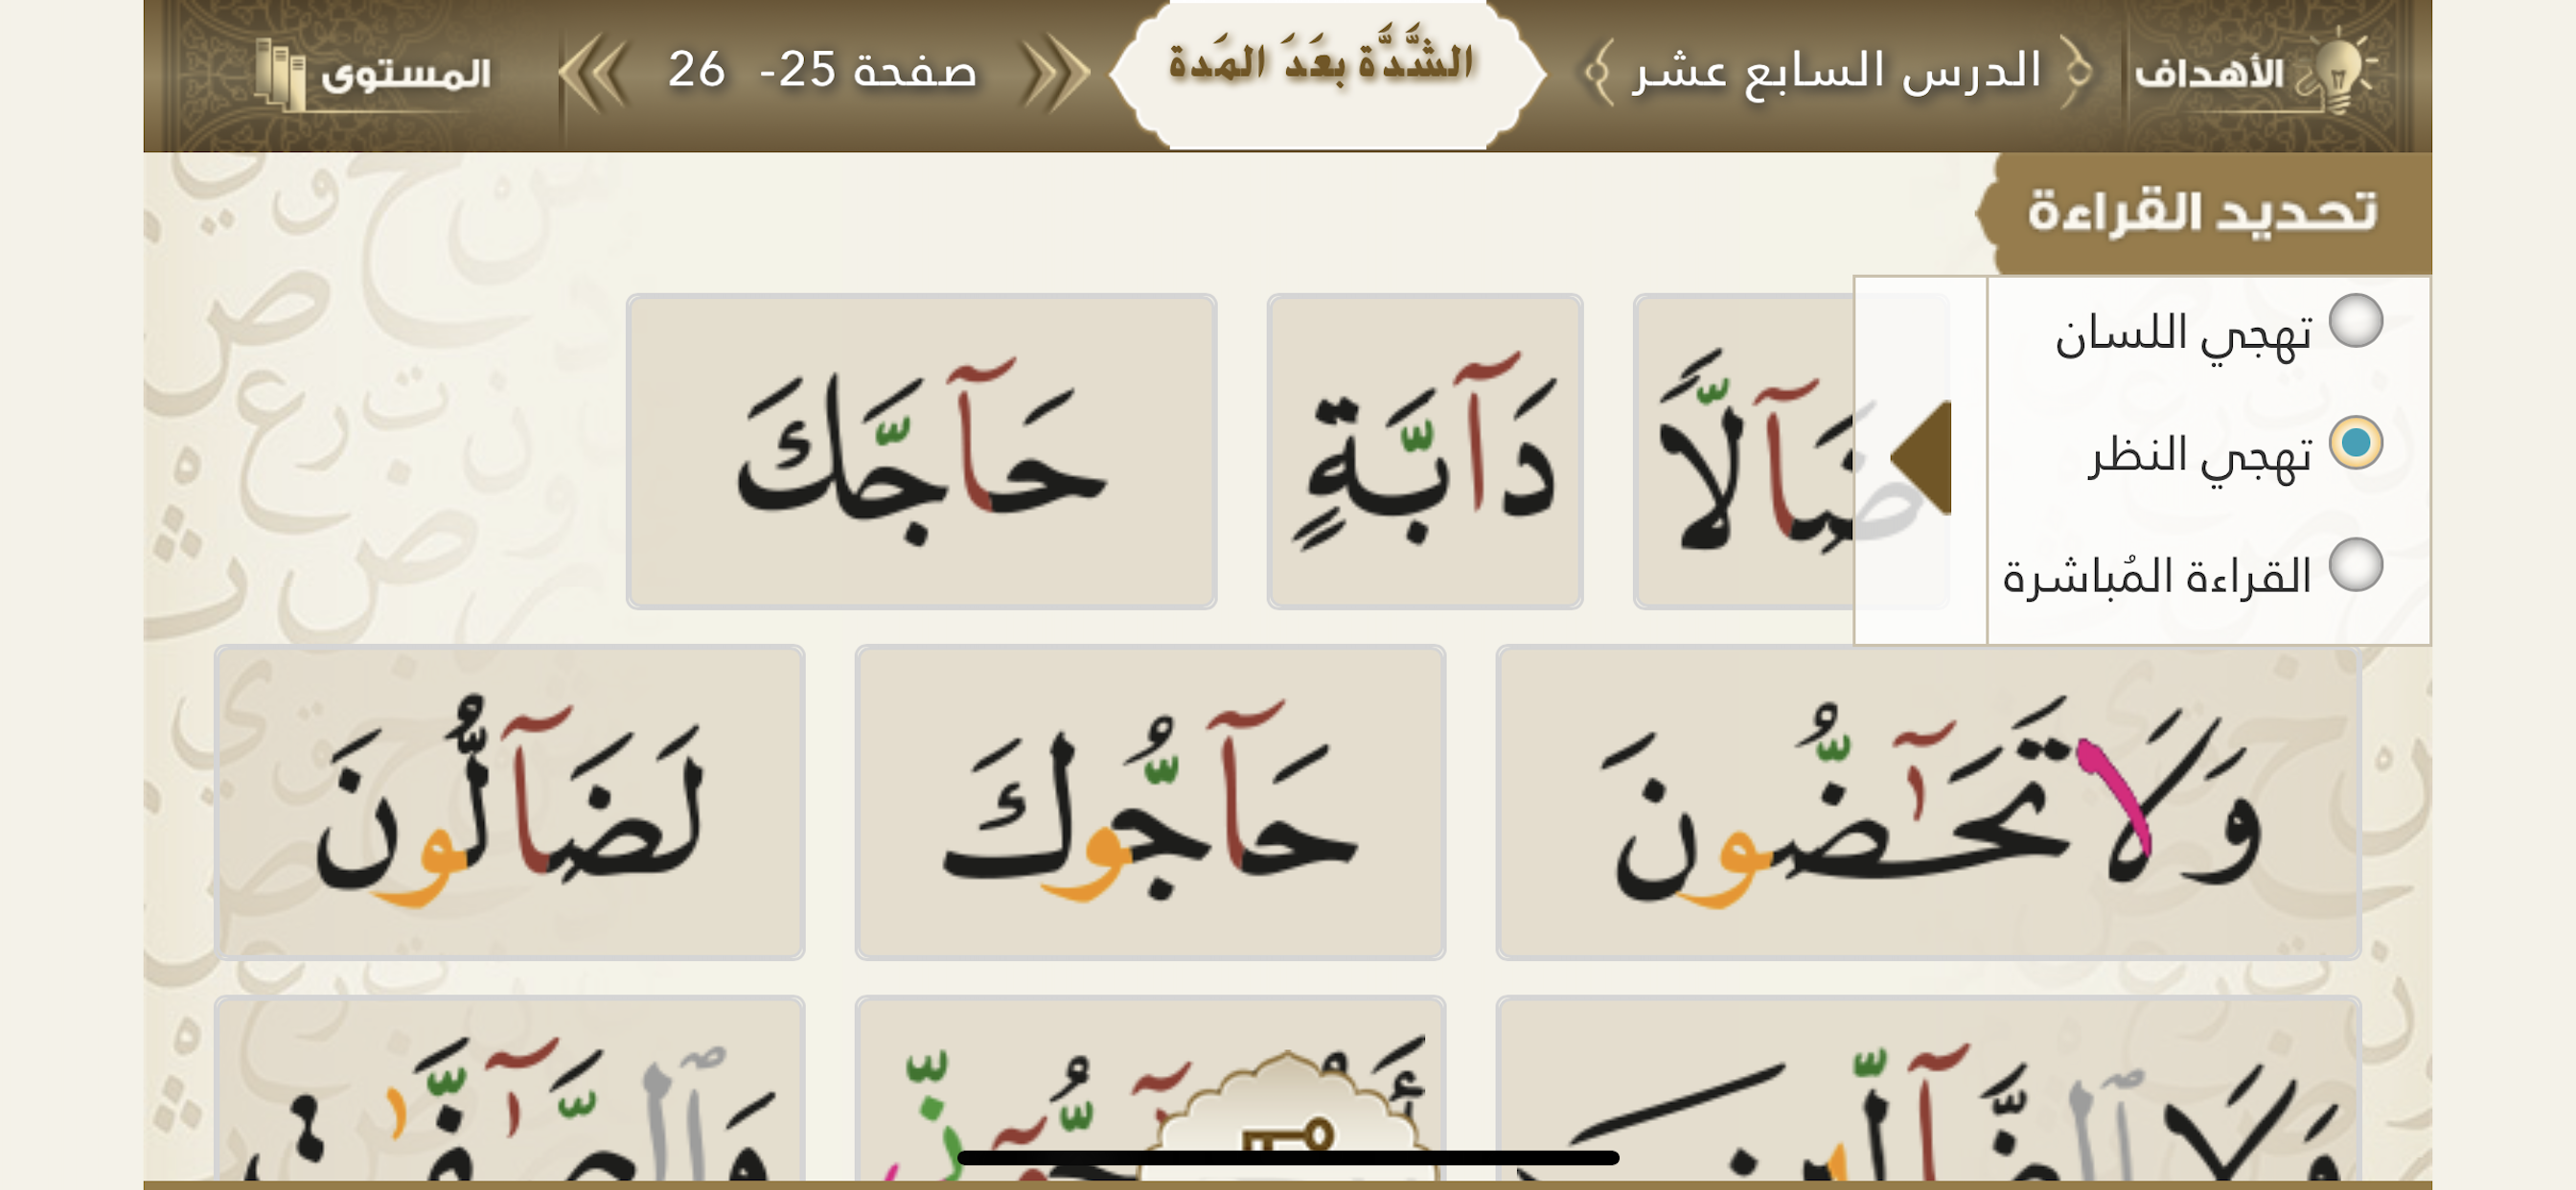 الأهداف
الدرس السابع عشر
الشَّدَّة بعَدَ المَدة
صفحة 25- 26
المستوى
تحديد القراءة
تهجي اللسان
تهجي النظر
القراءة المُباشرة
ضَآلاًّ
دَآبَّةٍ
حَآجَّكَ
وَلَا تَحَٰٓضُّونَ
حَآجُّوكَ
لَضَآلُّونَ
وَلَا ٱلضَّآلِّينَ
وَٱلصَّٰٓفَّٰتِ